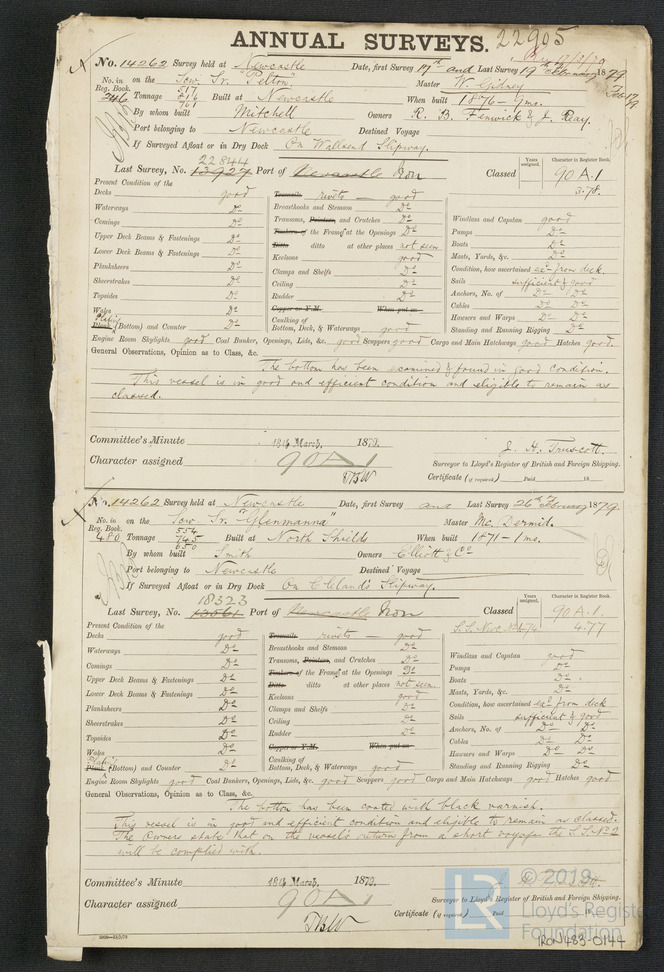 ANNUAL SURVEYS. 22905
No. 14262 Survey held at Newcastle Date, first Survey 17th and Last Survey 19th February 1879
No. in on the Scw. Sr. "Pelton" Master W. Gidney
Reg. Book.
246 Tonnage 517 761 Built at Newcastle When built 1876 - 9 ms.
By whom built Mitchell Owners R. B. Fenwick & J. Reay.
Port belonging to Newcastle Destined Voyage
If Surveyed Afloat or in Dry Dock On Wallsend Slipway.
22844
Last Survey, No. 13927 Port of Newcastle Iron Classed Years assigned. Character in Register Book. 90 A.1
3.78.
Present Condition of the
Decks good Treenails rivets — good
Waterways Do Breasthooks and Stemson Do Windlass and Capstan good
Comings Do Transoms, Pointers, and Crutches Do Pumps Do
Upper Deck Beams & Fastenings Do Timbers of the Frame at the Openings Do Boats Do
Lower Deck Beams & Fastenings Do Ditto ditto at other places not seen Masts, Yards, &c. Do
Planksheers Do Keelsons good Condition, how ascertained exd from deck.
Sheerstrakes Do Clamps and Shelfs Do Sails sufficient & good
Topsides Do Ceiling Do Anchors, No. of Do Do
Wales Do Rudder Do Cables Do Do
Plating Copper or Y.M. When put on Hawsers and Warps Do Do
Plank (Bottom) and Counter Do Caulking of Bottom, Deck, & Waterways good Standing and Running Rigging Do Do
Engine Room Skylights good Coal Bunker, Openings, Lids, &c. good Scuppers good Cargo and Main Hatchways good Hatches good.
General Observations, Opinion as to Class, &c.
The bottom has been examined & found in good condition.
This vessel is in good and efficient condition and eligible to remain as
classed.
Committee's Minute 18th March, 1879.
J. H. Truscott.
Character assigned 90 A 1 Surveyor to Lloyd's Register of British and Foreign Shipping.
Certificate (if required) Paid 18
No. 14262 Survey held at Newcastle Date, first Survey and Last Survey 26th February 1879.
No. in on the Scw. Sr. Master Mc. Dermid.
Reg. Book.
480 Tonnage 554 745 Built at North Shields When built 1871 - 1 ms.
By whom built Smith Owners Elliott & Co
Port belonging to Newcastle Destined Voyage
If Surveyed Afloat or in Dry Dock On Cleland's Slipway.
18323
Last Survey, No. Port of Newcastle Iron Classed Years assigned. Character in Register Book. 90 A.1.
4.77
Present Condition of the
Decks good Treenails rivets — good
Waterways Do Breasthooks and Stemson Do Windlass and Capstan good
Comings Do Transoms, Pointers, and Crutches Do Pumps Do
Upper Deck Beams & Fastenings Do Timbers of the Frame at the Openings Do Boats Do
Lower Deck Beams & Fastenings Do Ditto ditto at other places not seen Masts, Yards, &c. Do
Planksheers Do Keelsons good Condition, how ascertained exd from deck
Sheerstrakes Do Clamps and Shelfs Do Sails sufficient & good
Topsides Do Ceiling Do Anchors, No. of Do Do
Wales Do Rudder Do Cables Do Do
Plating Copper or Y.M. When put on Hawsers and Warps Do Do
Plank (Bottom) and Counter Do Caulking of Bottom, Deck, & Waterways good Standing and Running Rigging Do Do
Engine Room Skylights good Coal Bunkers, Openings, Lids, &c. good Scuppers good Cargo and Main Hatchways good Hatches good
General Observations, Opinion as to Class, &c.
The bottom has been coated with black varnish.
This vessel is in good and efficient condition and eligible to remain as classed.
The Owners state that on the vessel's return from a short voyage the S.S. No 2
will be complied with.
Committee's Minute 18th March, 1879.
Character assigned 90 A 1 Surveyor to Lloyd's Register of British and Foreign Shipping.
Certificate (if required) Paid
LR © 2019 Lloyd's Register Foundation
IRON483-0144